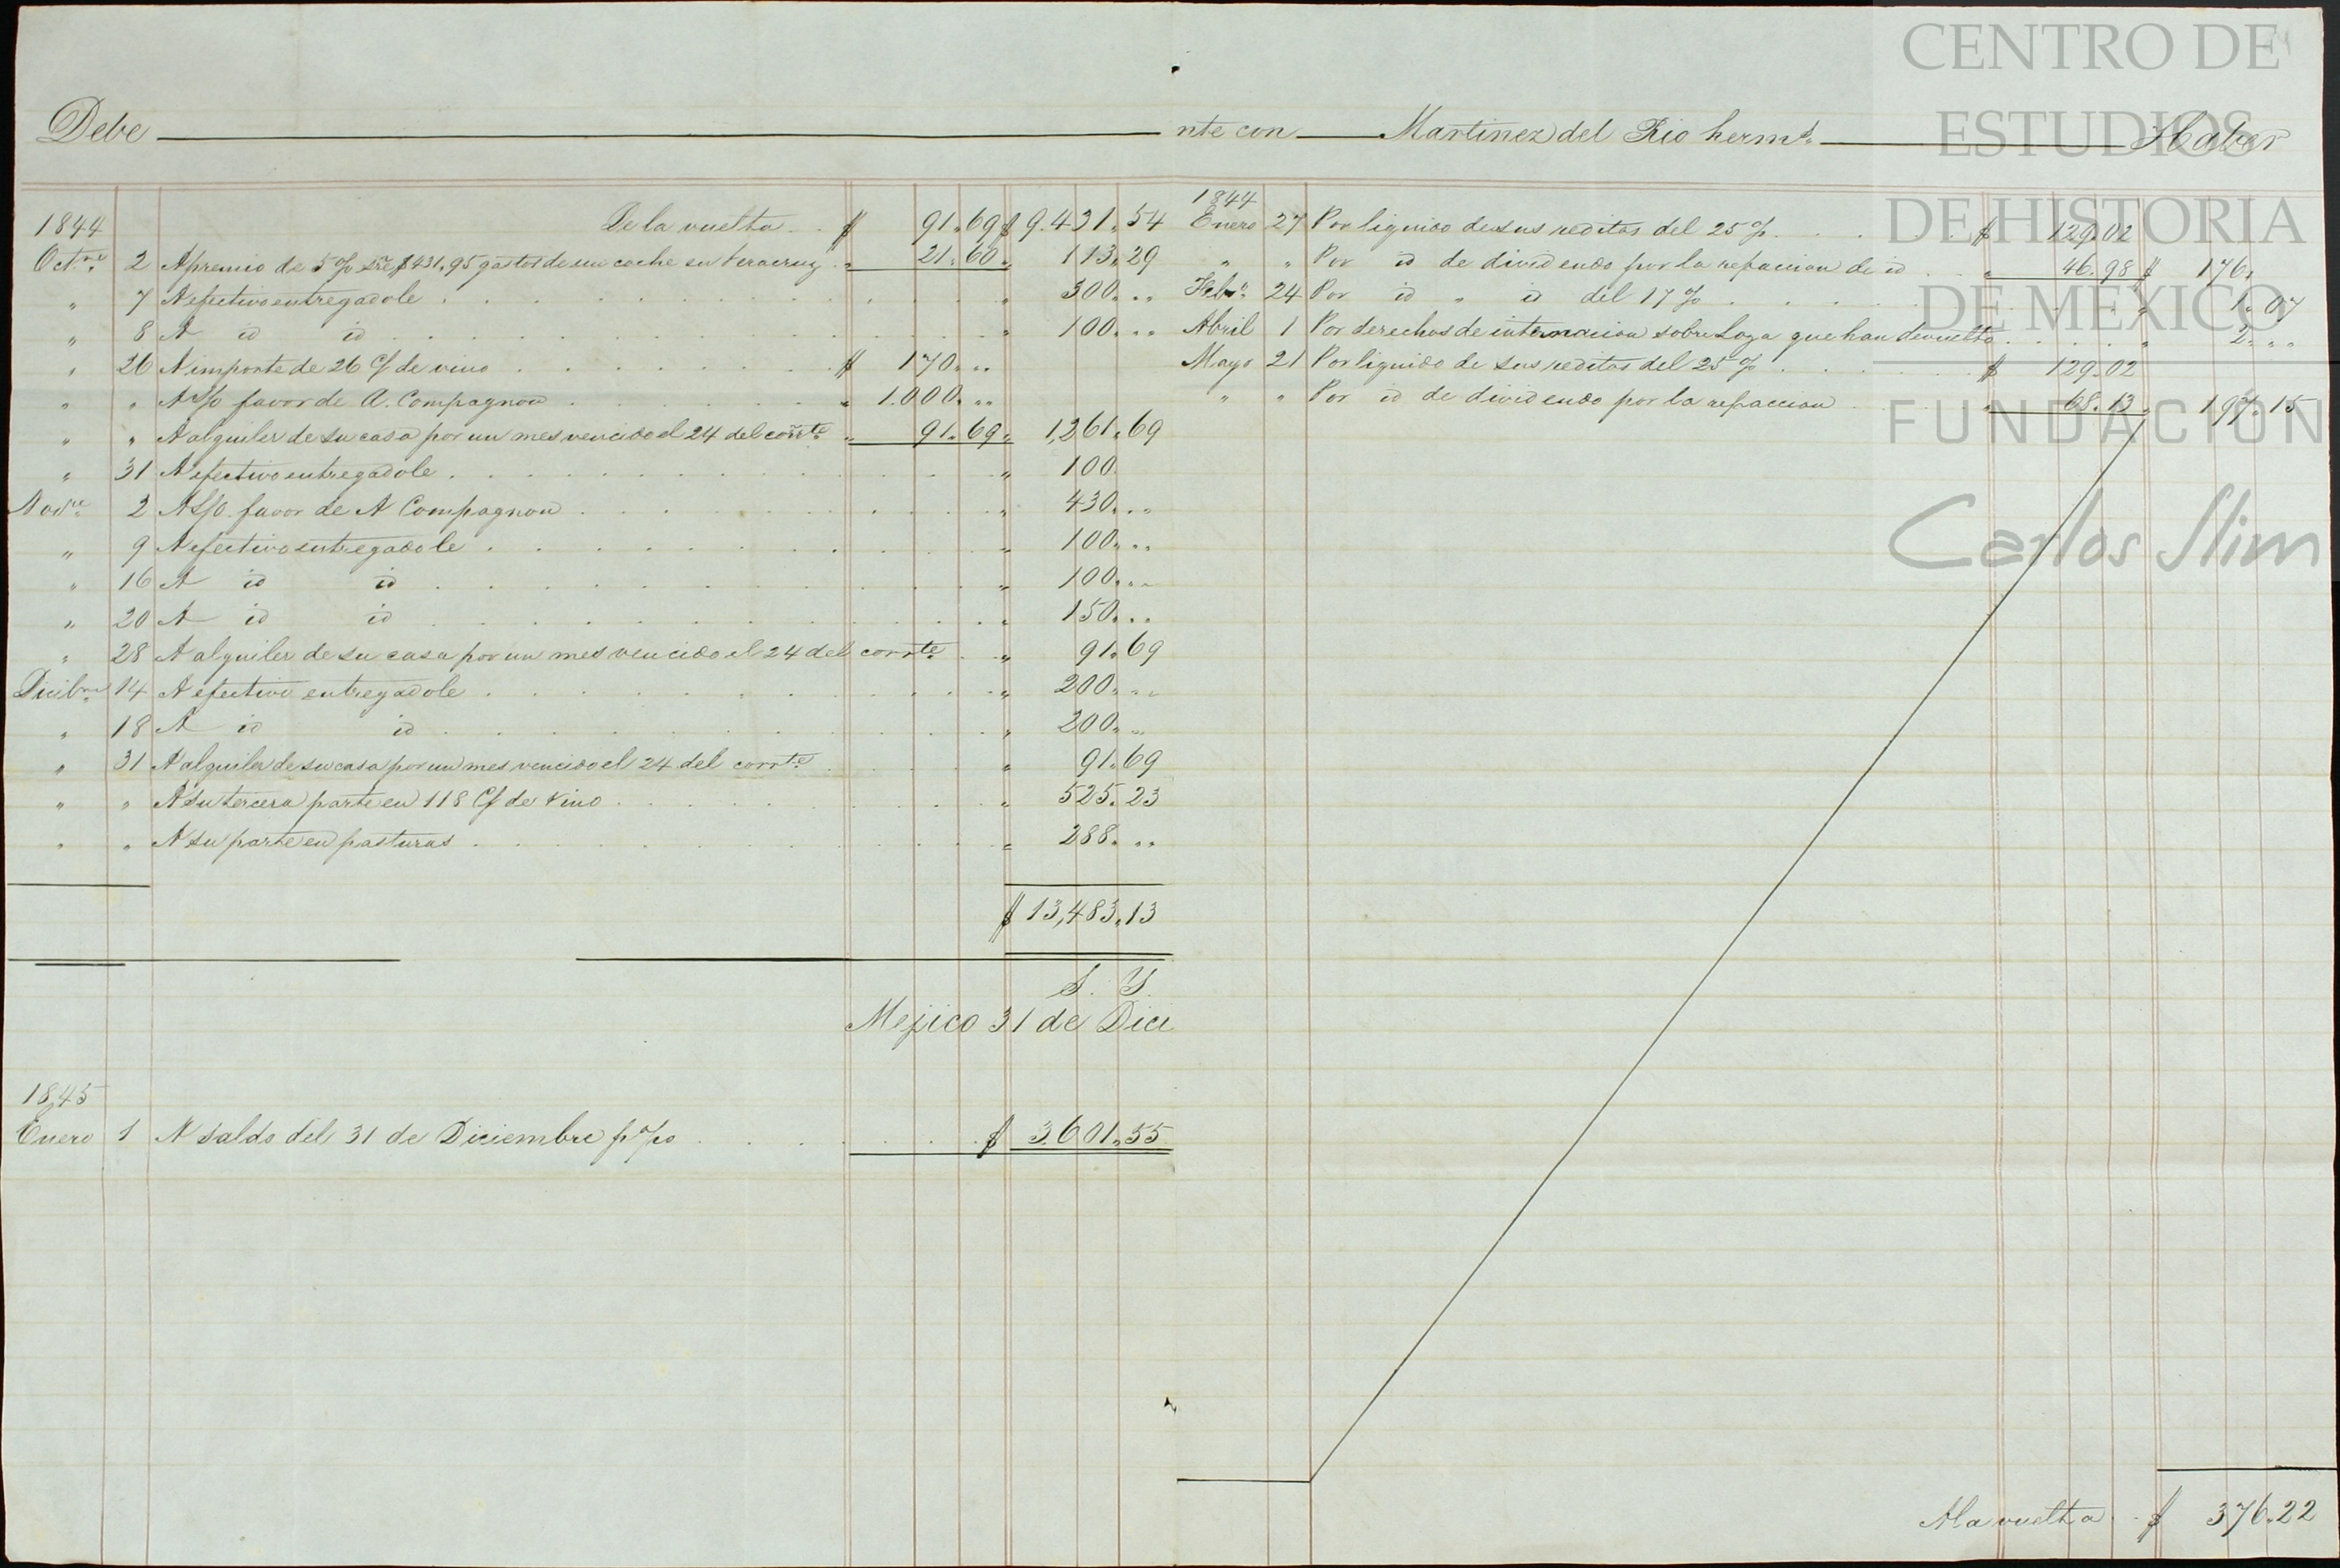 Debe nte con Martinez del Rio herms. Haber
1844 De la vuelta $ 91.69 $ 9.431.54
Octre. 2 A premio de 5 % sre $ 431.95 gastos de un coche en Veracruz " 21.60 " 113.29
" 7 A efectivo entregadole " 300. " "
" 8 A id id " 100. " "
" 26 A importe de 26 C/ de vino $ 170. " "
" " A s/o favor de A. Compagnon " 1.000. " "
" " A alquiler de su casa por un mes vencido el 24 del corrte. " 91.69 " 1,261.69
" 31 A efectivo entregadole " 100.
Novre. 2 A s/o. favor de A Compagnon " 430. " "
" 9 A efectivo entregadole " 100. " "
" 16 A id id " 100. " "
" 20 A id id " 150. " "
" 28 A alquiler de su casa por un mes vencido el 24 del corrte. " 91.69
Dicibre. 14 A efectivo entregadole " 200. " "
" 18 A id id " 200. " "
" 31 A alquiler de su casa por un mes vencido el 24 del corrte. " 91.69
" " A su tercera parte en 118 C/ de vino " 525.23
" " A su parte en pasturas " 288. " "
$ 13,483.13
S. Y.
Mejico 31 de Dici
1845
Enero 1 A saldo del 31 de Diciembre $ 3.601.55
1844
Enero 27 Por liquido de sus reditos del 25 % $ 129.02
" " Por id de dividendo por la refaccion de id " 46.98 $ 176.
Febo. 24 Por id " id del 17 % " 1.07
Abril 1 Por derechos de internacion sobre Loza que han devuelto " 2. " "
Mayo 21 Por liquido de sus reditos del 25 % $ 129.02
" " Por id de dividendo por la refaccion " 68.13 " 197.15
A la vuelta $ 376.22
CENTRO DE
ESTUDIOS
DE HISTORIA
DE MEXICO
FUNDACIÓN
Carlos Slim